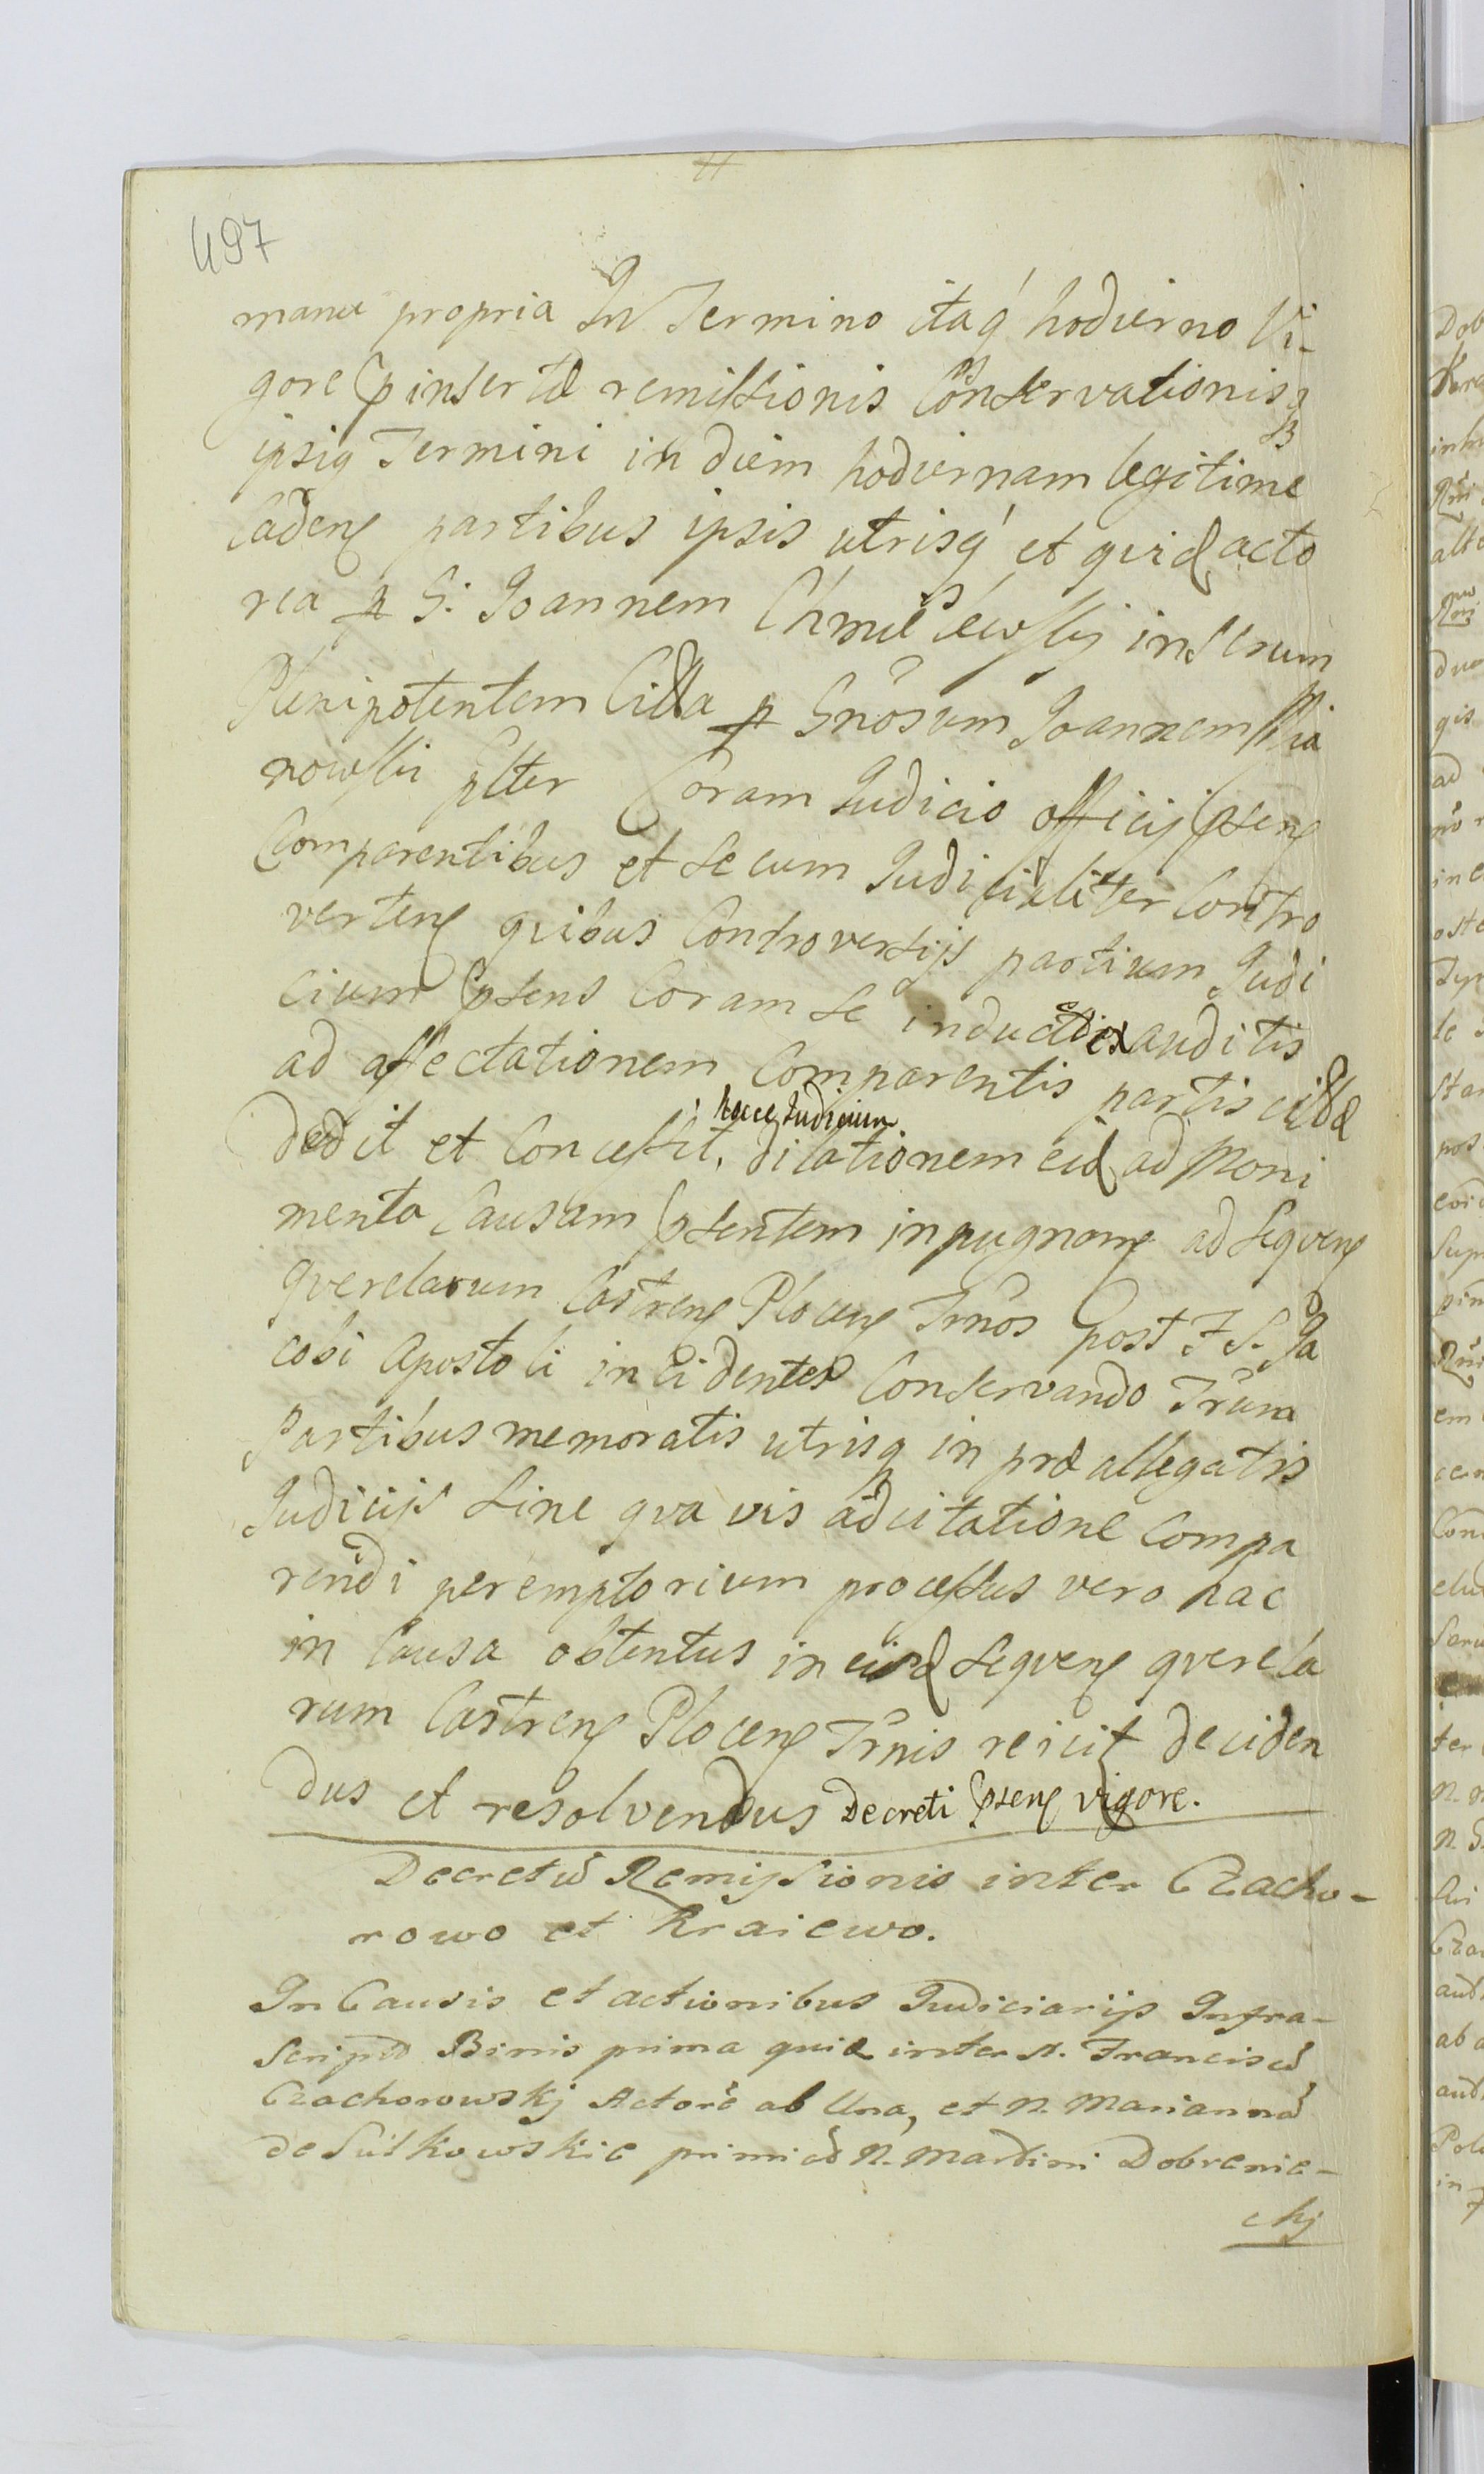 497
manu propria In Termino itaq́ hodierno Vi-
gore pinsertæ remissionis Conservationisq
ipsig Termini in diem hodiernam legitime
Caden partibus ipsis utrisq́ et quid acto
rea p G. Joannem Chmielewski inscrum
Plenipotentem Citta p Gnosum Joannem
nowski plter Coram Judicio officij psen
Comparentibus et secum Judicialiter Contro
verten quibus Controversijs partium Judi
cium psens Coram se inductis exauditis
ad affectationem Comparentis partis cittæ
dedit et Concessit, hocce Judicium dilationem eid ad Moni
menta Causam psentem inpugnan ad sequen
querelarum Castren Plocen Trnos post F. S. Ja
cobi Apostoli incidentes Conservando Trum
Partibus memoratis utrisq in præallegatis
Judicijs sine qva vis adcitatione compa
rendi peremptorium processus vero hac
in Causa obtentus in eisd sequen querela
rum Castren Plocen Trnis reicit deciden
dus et resolvendus Decreti psen vigore.
Decretũ Remissionis inter Czacho-
rowo et Kraiewo.
In Causis et actionibus Judiciarijs Infra-
Scriptis Binis prima quid inter N. Franciscũ
Czachorowskj Actorẽ ab Una, et N. Mariannã
de Sulkowskie primi N. Martini Dobrznie-
ckj